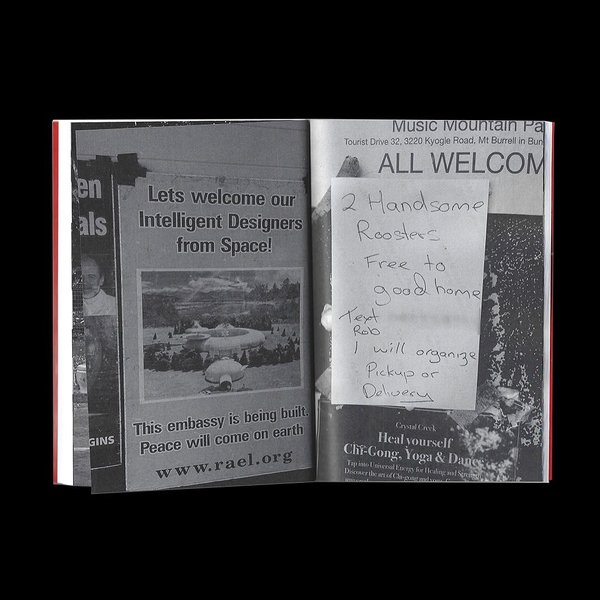 en
als
GINS
Lets welcome our
Intelligent Designers
from Space!
This embassy is being built.
Peace will come on earth
www.rael.org
Music Mountain Pa
Tourist Drive 32, 3220 Kyogle Road, Mt Burrell in Bun
ALL WELCOM
2 Handsome
Roosters.
Free to
good home
Text
Rob
I will organize
Pickup or
Delivery
Crystal Creek
Heal yourself
Chi-Gong, Yoga & Dance
Tap into Universal Energy for Healing and
Discover the art of Chi-gong and